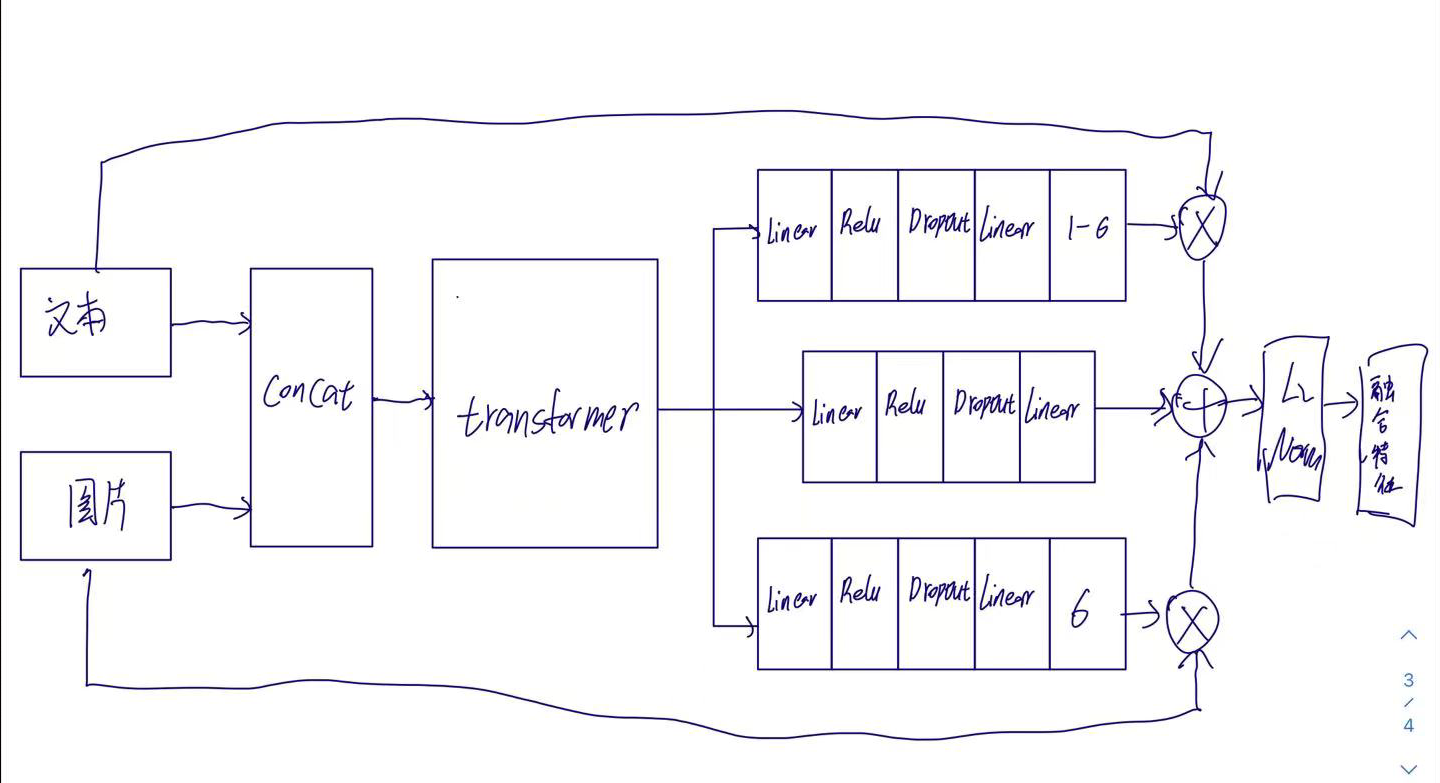 文本
图片
Concat
transformer
Linear Relu Dropout Linear 1-6
Linear Relu Dropout Linear
Linear Relu Dropout Linear 6
X
+
X
L2
Norm
融
合
特
征
3
/
4